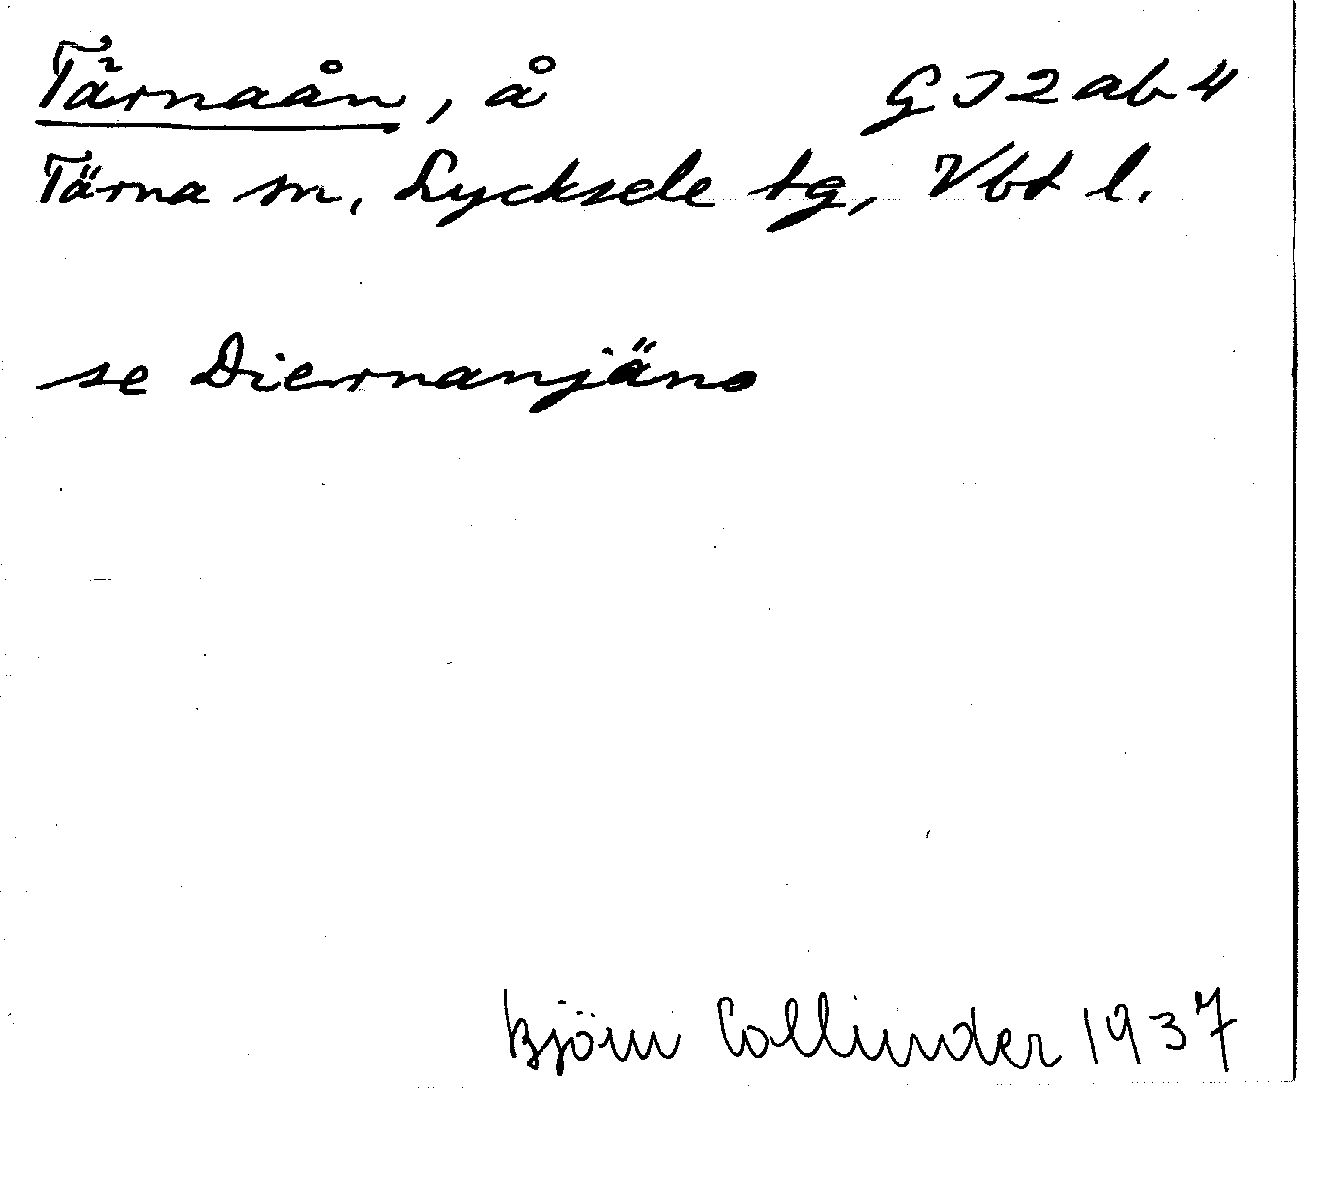 Tärnaån, å GI2ab4
Tärna sn, Lycksele tg, Vbt l.
se Diernanjäno
Björn Collinder 1937